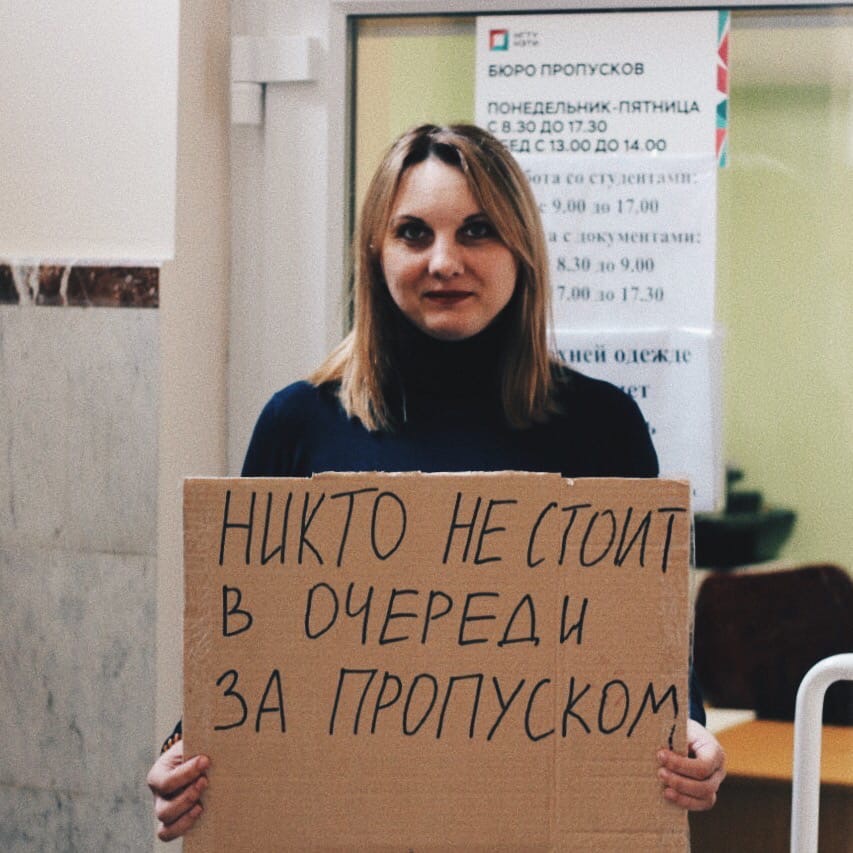 НГТУ
НЭТИ
БЮРО ПРОПУСКОВ
ПОНЕДЕЛЬНИК-ПЯТНИЦА
С 8.30 ДО 17.30
С 13.00 ДО 14.00
со студентами:
с 9.00 до 17.00
с документами:
8.30 до 9.00
17.30
одежде
НИКТО НЕ СТОИТ
В ОЧЕРЕДИ
ЗА ПРОПУСКОМ